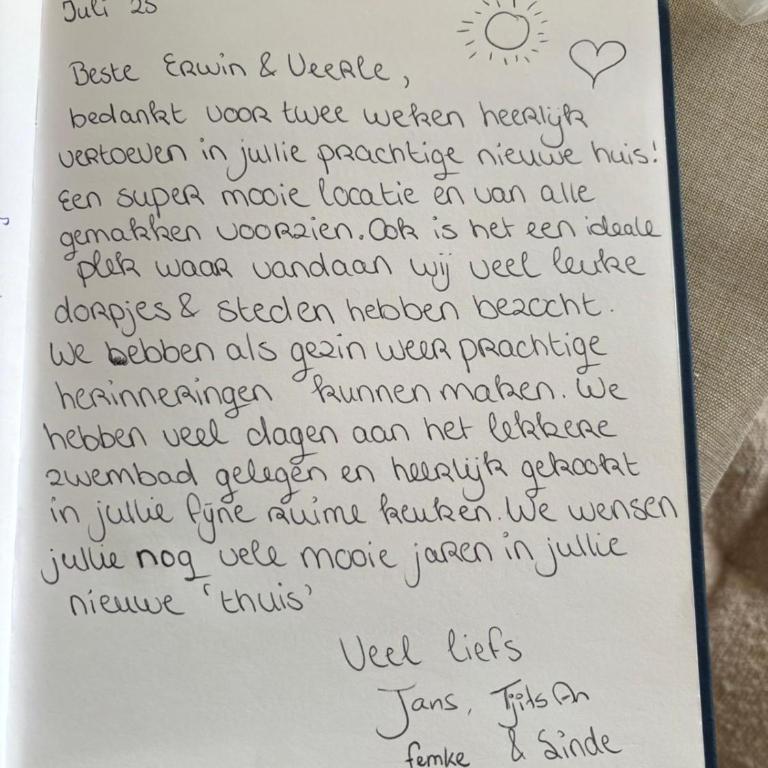 Juli 25
Beste Erwin & Veerle,
bedankt voor twee weken heerlijk
vertoeven in jullie prachtige nieuwe huis!
Een super mooie locatie en van alle
gemakken voorzien. Ook is het een ideale
plek waar vandaan wij veel leuke
dorpjes & steden hebben bezocht.
We hebben als gezin weer prachtige
herinneringen kunnen maken. We
hebben veel dagen aan het lekkere
zwembad gelegen en heerlijk gekookt
in jullie fijne ruime keuken. We wensen
jullie nog vele mooie jaren in jullie
nieuwe 'thuis'
Veel liefs
Jans,
femke & Sinde